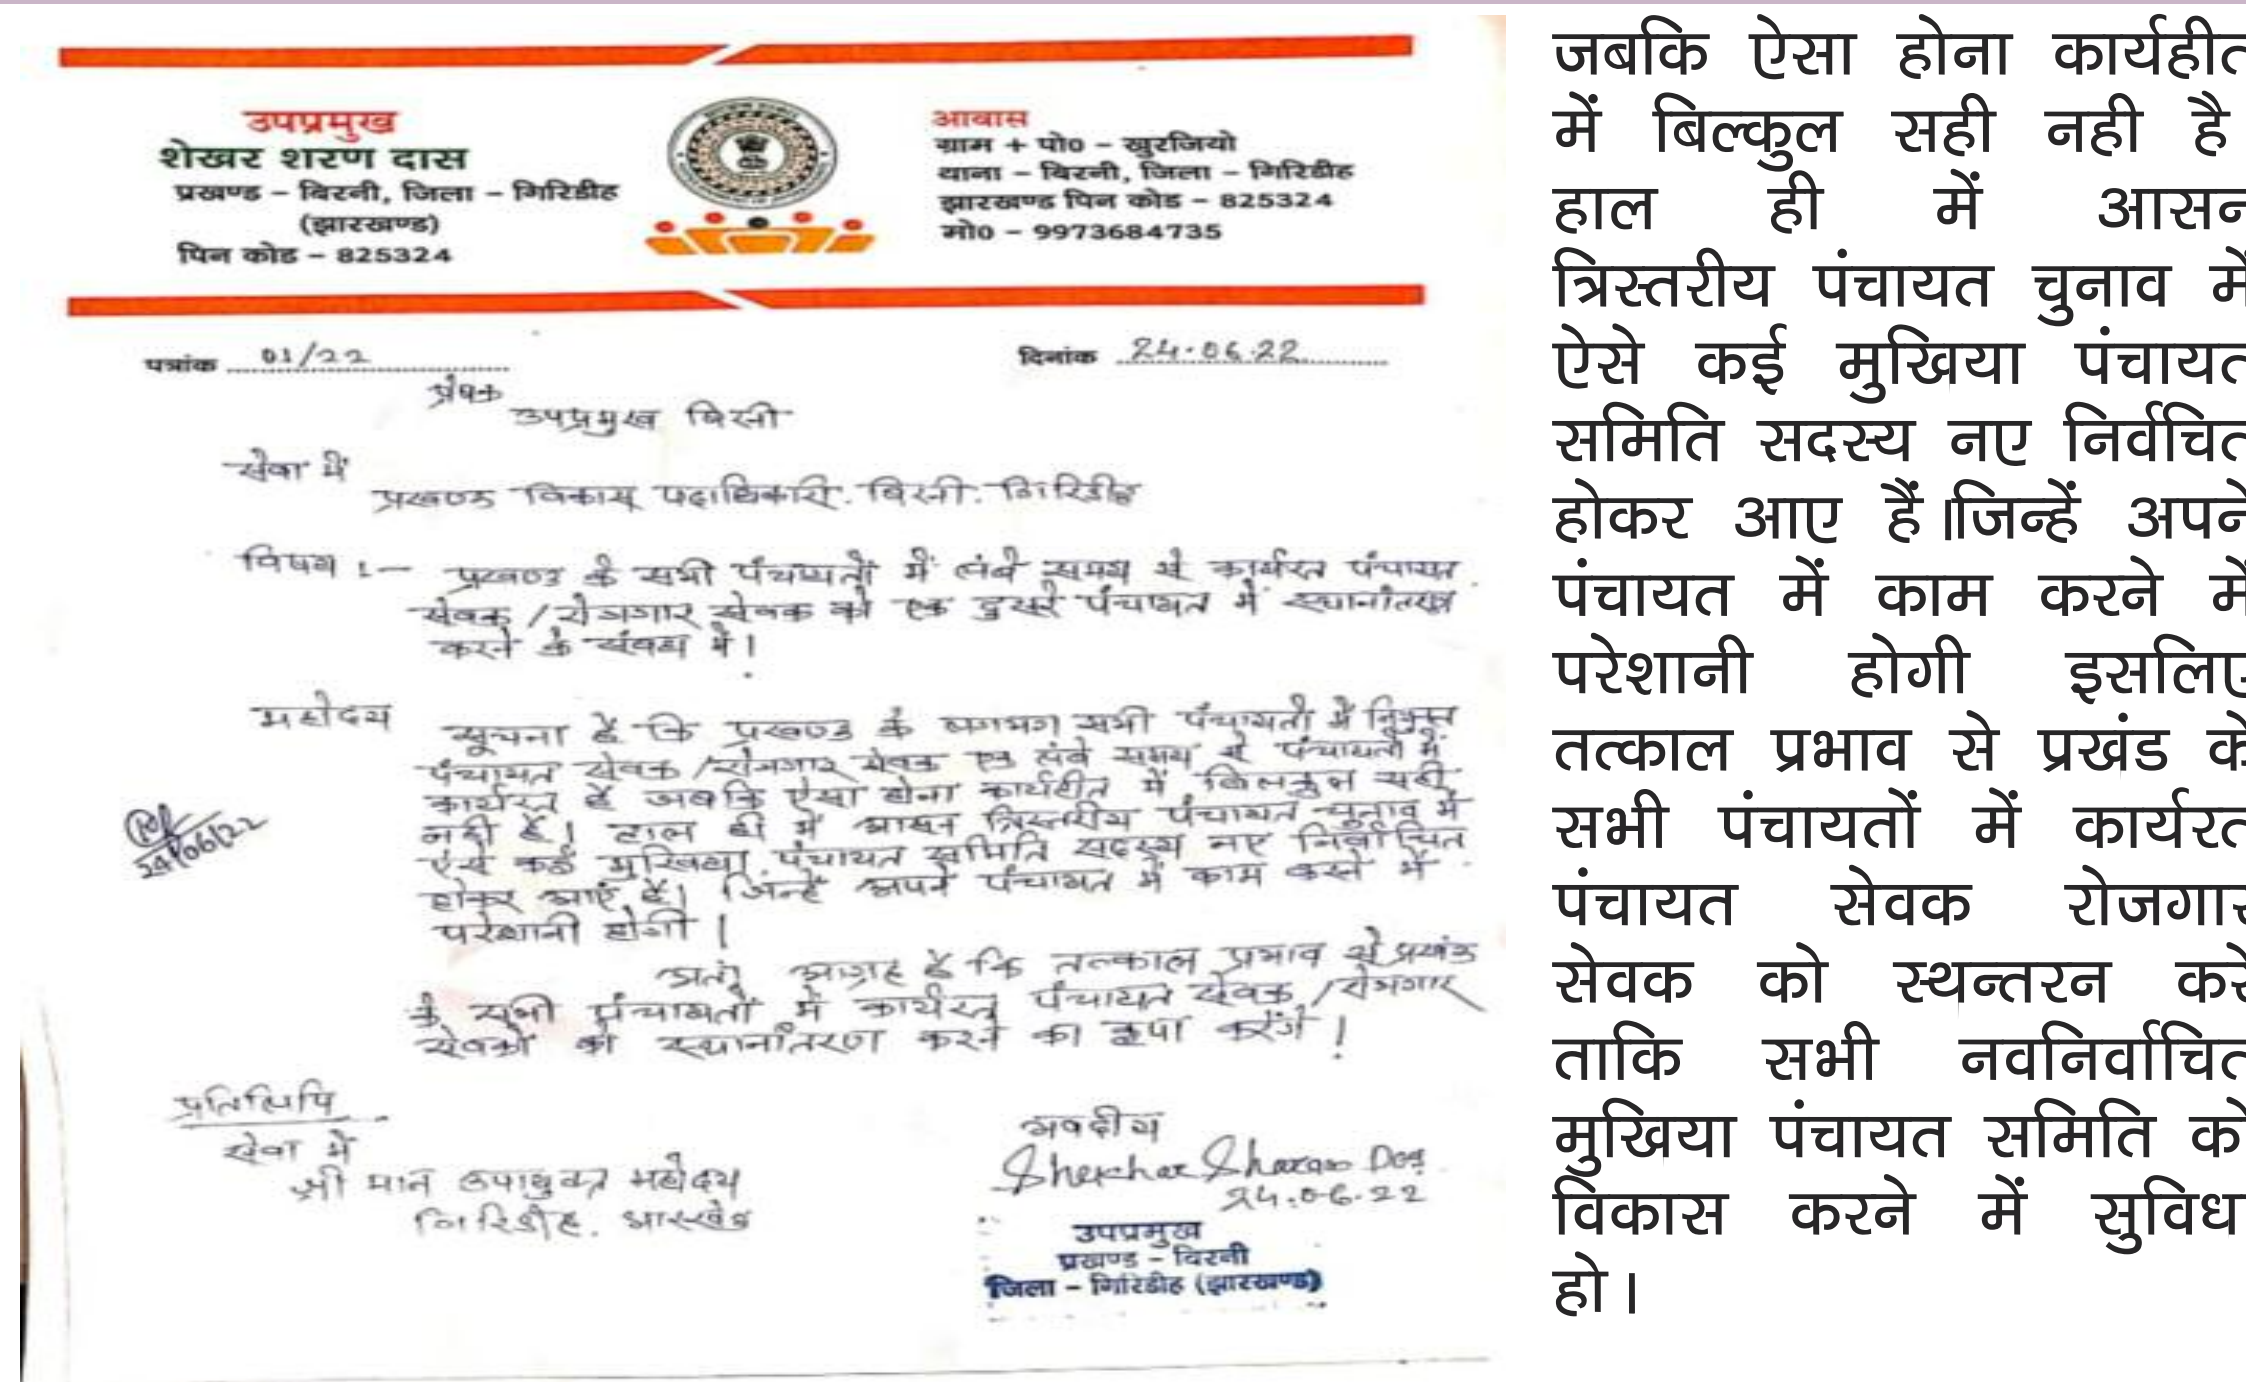 उपप्रमुख
शेखर शरण दास
प्रखण्ड – बिरनी, जिला – गिरिडीह
(झारखण्ड)
पिन कोड – 825324
आवास
ग्राम + पो0 – खुरजियो
थाना – बिरनी, जिला – गिरिडीह
झारखण्ड पिन कोड – 825324
मो0 – 9973684735
पत्रांक 01/22
दिनांक 24.06.22
प्रेषक
उपप्रमुख बिरनी
सेवा में
प्रखण्ड विकास पदाधिकारी. बिरनी. गिरिडीह
विषय :— प्रखण्ड के सभी पंचायतों में लंबे समय से कार्यरत पंचायत
सेवक / रोजगार सेवक को एक दुसरे पंचायत में स्थानांतरण
करने के संबंध में।
महोदय
सूचना है कि प्रखण्ड के लगभग सभी पंचायतों में नियुक्त
पंचायत सेवक / रोजगार सेवक एक लंबे समय से पंचायतों में
कार्यरत है जबकि ऐसा होना कार्यहीत में बिलकुल सही
नही है। हाल ही में आसन त्रिस्तरीय पंचायत चुनाव में
ऐसे कई मुखिया, पंचायत समिति सदस्य नए निर्वाचित
होकर आएं हैं। जिन्हें अपने पंचायत में काम करने में
परेशानी होगी।
अतः आग्रह है कि तत्काल प्रभाव से प्रखंड
के सभी पंचायतों में कार्यरत पंचायत सेवक / रोजगार
सेवकों को स्थानांतरण करने का कृपा करेंगे।
24/06/22
प्रतिलिपि
सेवा में
श्री मान उपायुक्त महोदय
गिरिडीह. झारखंड
भवदीय
Shekhar Sharan Das
24.06.22
उपप्रमुख
प्रखण्ड – बिरनी
जिला – गिरिडीह (झारखण्ड)
जबकि ऐसा होना कार्यहीत
में बिल्कुल सही नही है
हाल ही में आसन
त्रिस्तरीय पंचायत चुनाव में
ऐसे कई मुखिया पंचायत
समिति सदस्य नए निर्वचित
होकर आए हैं।जिन्हें अपने
पंचायत में काम करने में
परेशानी होगी इसलिए
तत्काल प्रभाव से प्रखंड के
सभी पंचायतों में कार्यरत
पंचायत सेवक रोजगार
सेवक को स्थन्तरन करें
ताकि सभी नवनिर्वाचित
मुखिया पंचायत समिति को
विकास करने में सुविधा
हो।